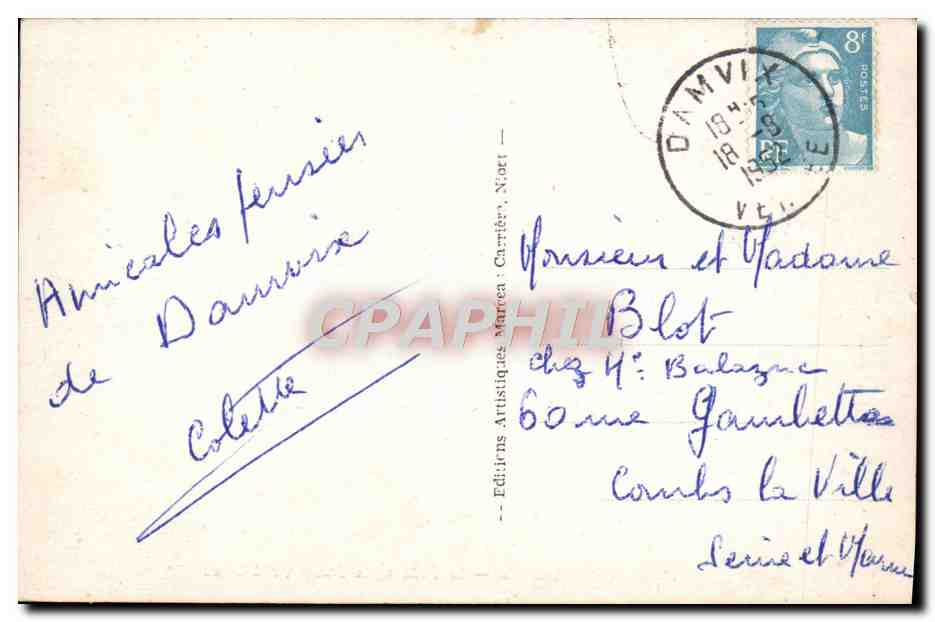 Amicales pensées
de Damvix
Colette
-- Editions Artistiques Marcea: Carrière, Niort --
8f
POSTES
RF
DAMVIX
18 H
18 -8
1952
VEN EE
Monsieur et Madame
Blot
chez Mr: Balaznc
60 rue Gambetta
Combs la Ville
Seine et Marne
CPAPHIL